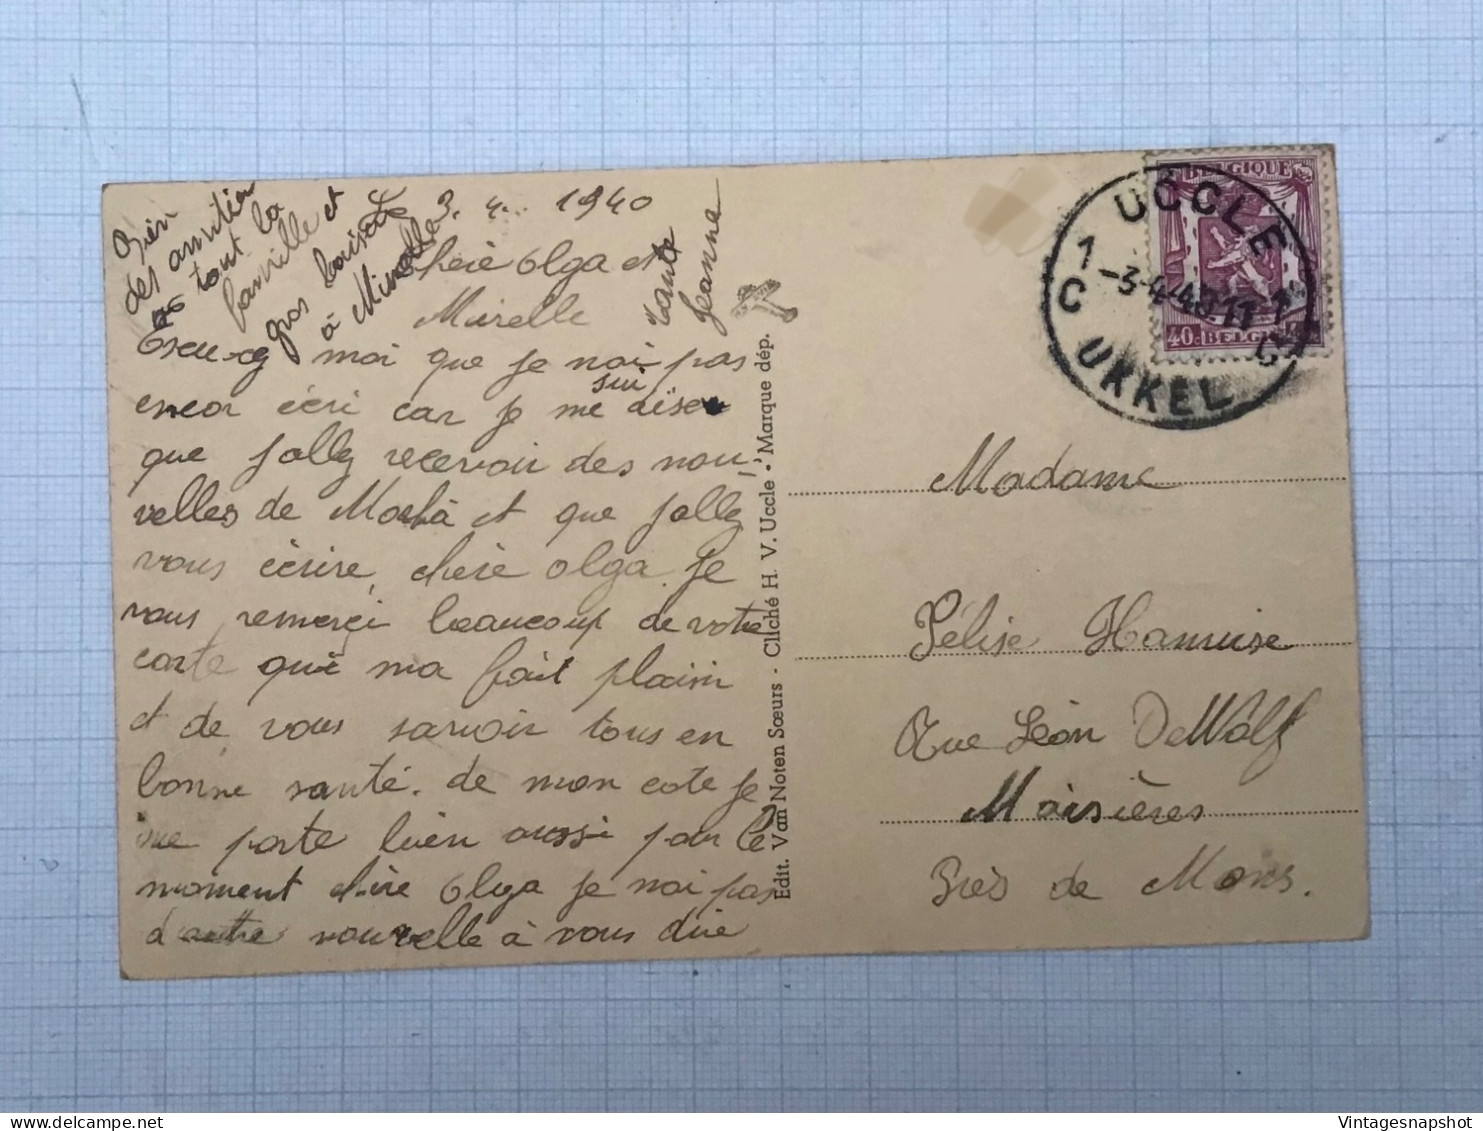 Le 3. 4. 1940
Chère Olga et
Mirelle
Excu-ez moi que je nai pas
encor écri car je me
sui diser
que jallez recevoir des nou-
velles de Mocha et que jallez
vous écrire, chère Olga. je
vous remerçi beaucoup de votre
carte qui ma fait plaisir
et de vous savoir tous en
bonne santé. de mon cote je
me porte bien aussi pour le
moment chère Olga je nai pas
d'autre nouvelle à vous dire
Bien
des amitiés
as tout la
famille et
gros baiser
à Mirelle
Tante
Jeanne
Edit. Van Noten Sœurs - Cliché H. V. Uccle - Marque dép.
BELGIQUE
40c BELGIE
UCCLE
1 -3-4-40 11
C C
UKKEL
Madame
Félise Hamuise
Rue Léon DeWolf
Maisières
Près de Mons.
Vintagesnapshot